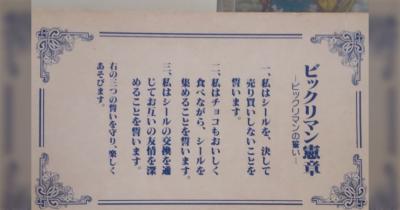 ビックリマン憲章
―ビックリマンの誓い―
一、私はシールを、決して
売り買いしないことを
誓います。
二、私はチョコもおいしく
食べながら、シールを
集めることを誓います。
三、私はシールの交換を通
じてお互いの友情を深
めることを誓います。
右の三つの誓いを守り、楽しく
あそびます。